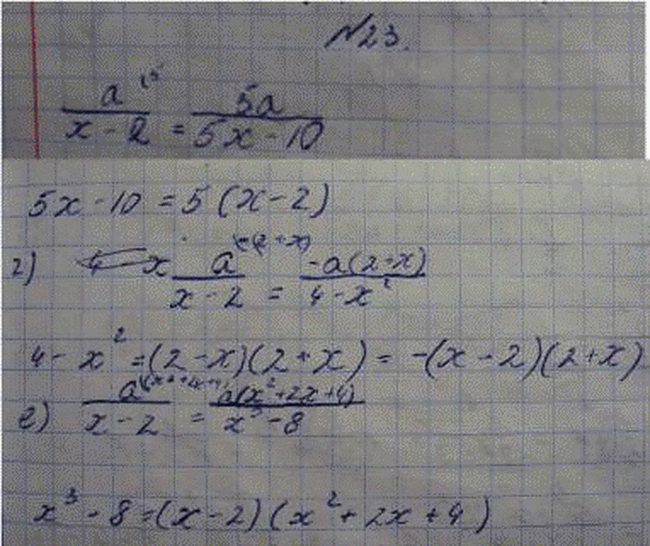 №23.
a^(5 / x - 2 = 5a / 5x - 10
5x - 10 = 5(x - 2)
г) x a^(-(2+x) / x - 2 = -a(2+x) / 4 - x²
4 - x² = (2 - x)(2 + x) = -(x - 2)(2 + x)
е) a / x - 2 = a(x² + 2x + 4) / x³ - 8
x³ - 8 = (x - 2)(x² + 2x + 4)